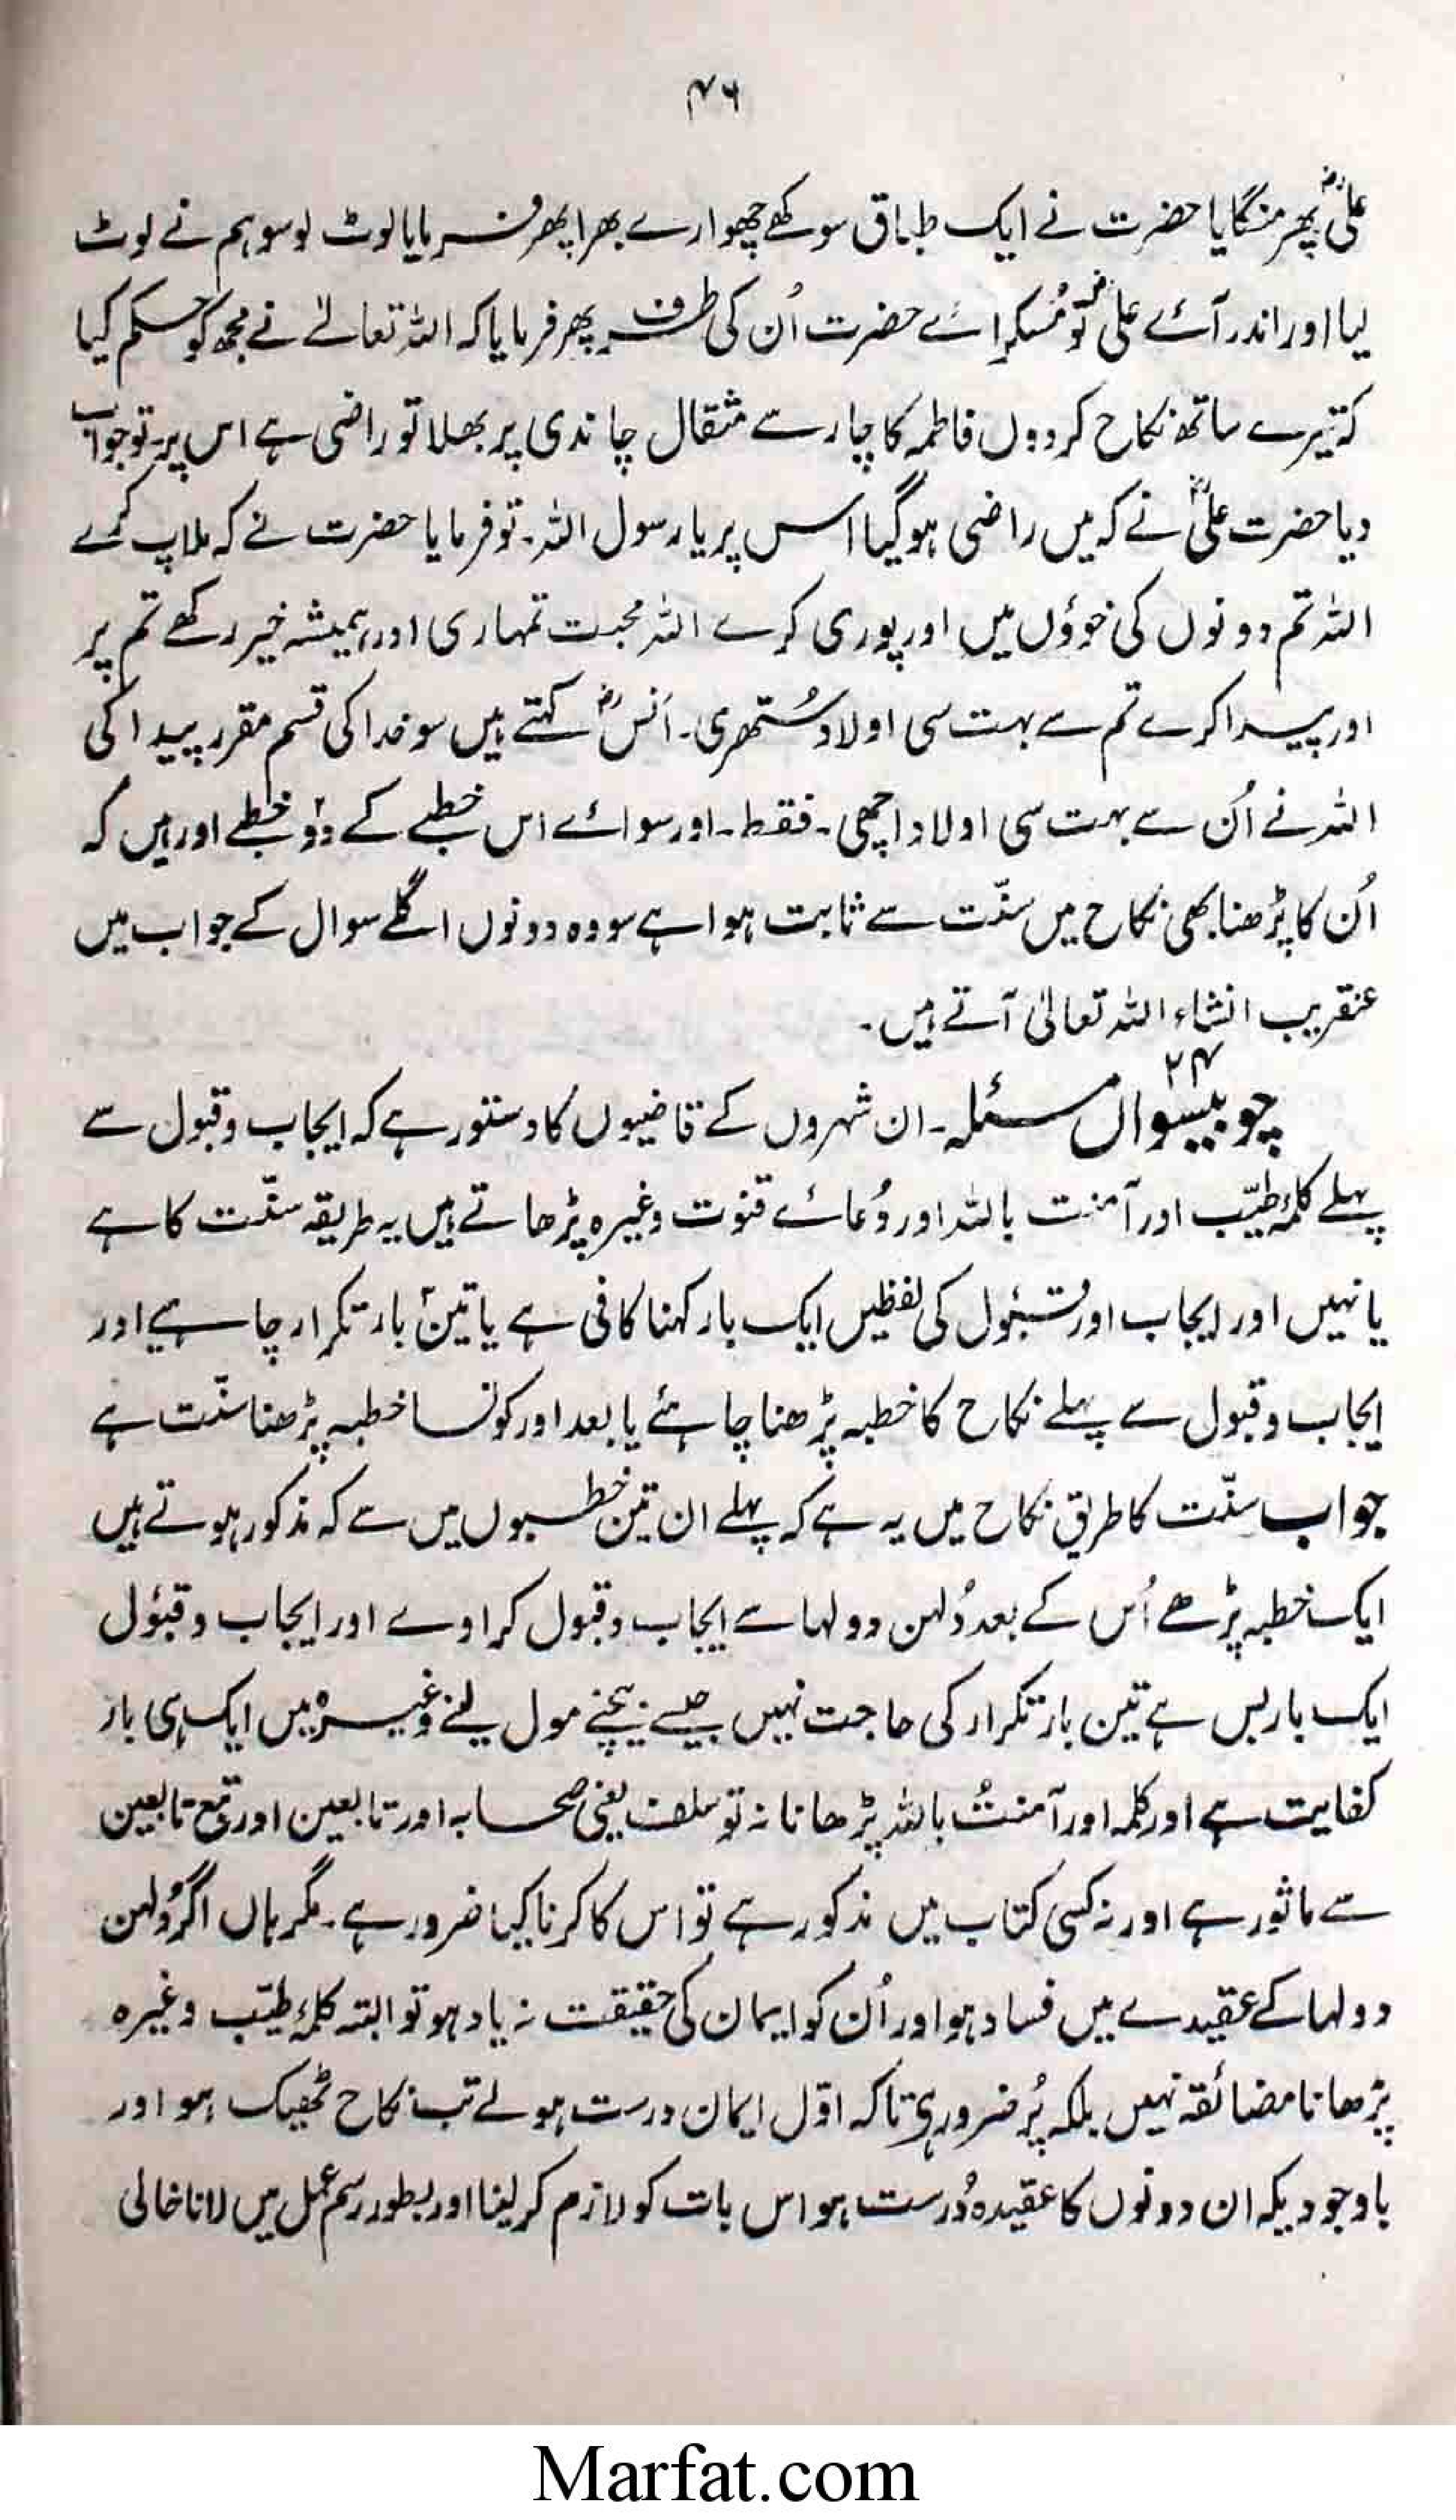 ۴۶
علیؓ پھر منگایا حضرت نے ایک طباق سوکھے چھوارے بھرا پھر فرمایا لوٹ لو سو ہم نے لوٹ
لیا اور اندر آئے علیؓ تو مُسکرائے حضرت اُن کی طرف پھر فرمایا کہ اللہ تعالےٰ نے مجھ کو حکم کیا
کہ تیرے ساتھ نکاح کر دوں فاطمہ کا چار سے مثقال چاندی پر بھلا تو راضی ہے اس پر۔ تو جواب
دیا حضرت علیؓ نے کہ میں راضی ہو گیا اس پر یا رسول اللہ۔ تو فرمایا حضرت نے کہ ملاپ کرے
اللہ تم دونوں کی خوؤں میں اور پوری کرے اللہ محبت تمہاری اور ہمیشہ خیر رکھے تم پر
اور پیدا کرے تم سے بہت سی اولاد سُتھری۔ اَنسؓ کہتے ہیں سو خدا کی قسم مقرر پیدا کی
اللہ نے اُن سے بہت سی اولاد اچھی۔ فقط۔ اور سوائے اس خطبے کے دو۲ خطبے اور ہیں کہ
اُن کا پڑھنا بھی نکاح میں سنّت سے ثابت ہوا ہے سو وہ دونوں اگلے سوال کے جواب میں
عنقریب انشاء اللہ تعالیٰ آتے ہیں۔
۲۴
چوبیسواں مسئلہ۔ ان شہروں کے قاضیوں کا دستور ہے کہ ایجاب و قبول سے
پہلے کلمۂ طیّب اور آمنت باللہ اور دُعائے قنوت وغیرہ پڑھاتے ہیں یہ طریقہ سنّت کا ہے
یا نہیں اور ایجاب اور قبُول کی لفظیں ایک بار کہنا کافی ہے یا تین۳ بار تکرار چاہیے اور
ایجاب و قبول سے پہلے نکاح کا خطبہ پڑھنا چاہئے یا بعد اور کونسا خطبہ پڑھنا سنّت ہے
جواب سنّت کا طریق نکاح میں یہ ہے کہ پہلے ان تین خطبوں میں سے کہ مذکور ہوتے ہیں
ایک خطبہ پڑھے اُس کے بعد دُلہن دولہا سے ایجاب و قبول کراوے اور ایجاب و قبُول
ایک بار بس ہے تین بار تکرار کی حاجت نہیں جیسے بیچنے مول لینے وغیرہ میں ایک ہی بار
کفایت ہے اور کلمہ اور آمنتُ باللہ پڑھانا نہ تو سلف یعنی صحابہ اور تابعین اور تبع تابعین
سے ماثور ہے اور نہ کسی کتاب میں مذکور ہے تو اس کا کرنا کیا ضرور ہے۔ مگر ہاں اگر دُلہن
دولہا کے عقیدے میں فساد ہو اور اُن کو ایمان کی حقیقت نہ یاد ہو تو البتہ کلمۂ طیّب وغیرہ
پڑھانا مضائقہ نہیں بلکہ پُر ضرور ہی تاکہ اوّل ایمان درست ہولے تب نکاح ٹھیک ہو اور
باوجودیکہ ان دونوں کا عقیدہ دُرست ہو اس بات کو لازم کر لینا اور بطور رسم عمل میں لانا خالی
Marfat.com